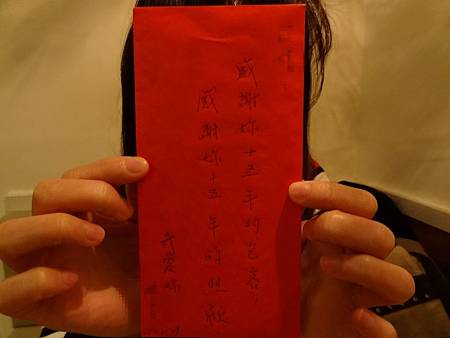 感謝妳十五年的包容
感謝妳十五年的照顧
我愛妳